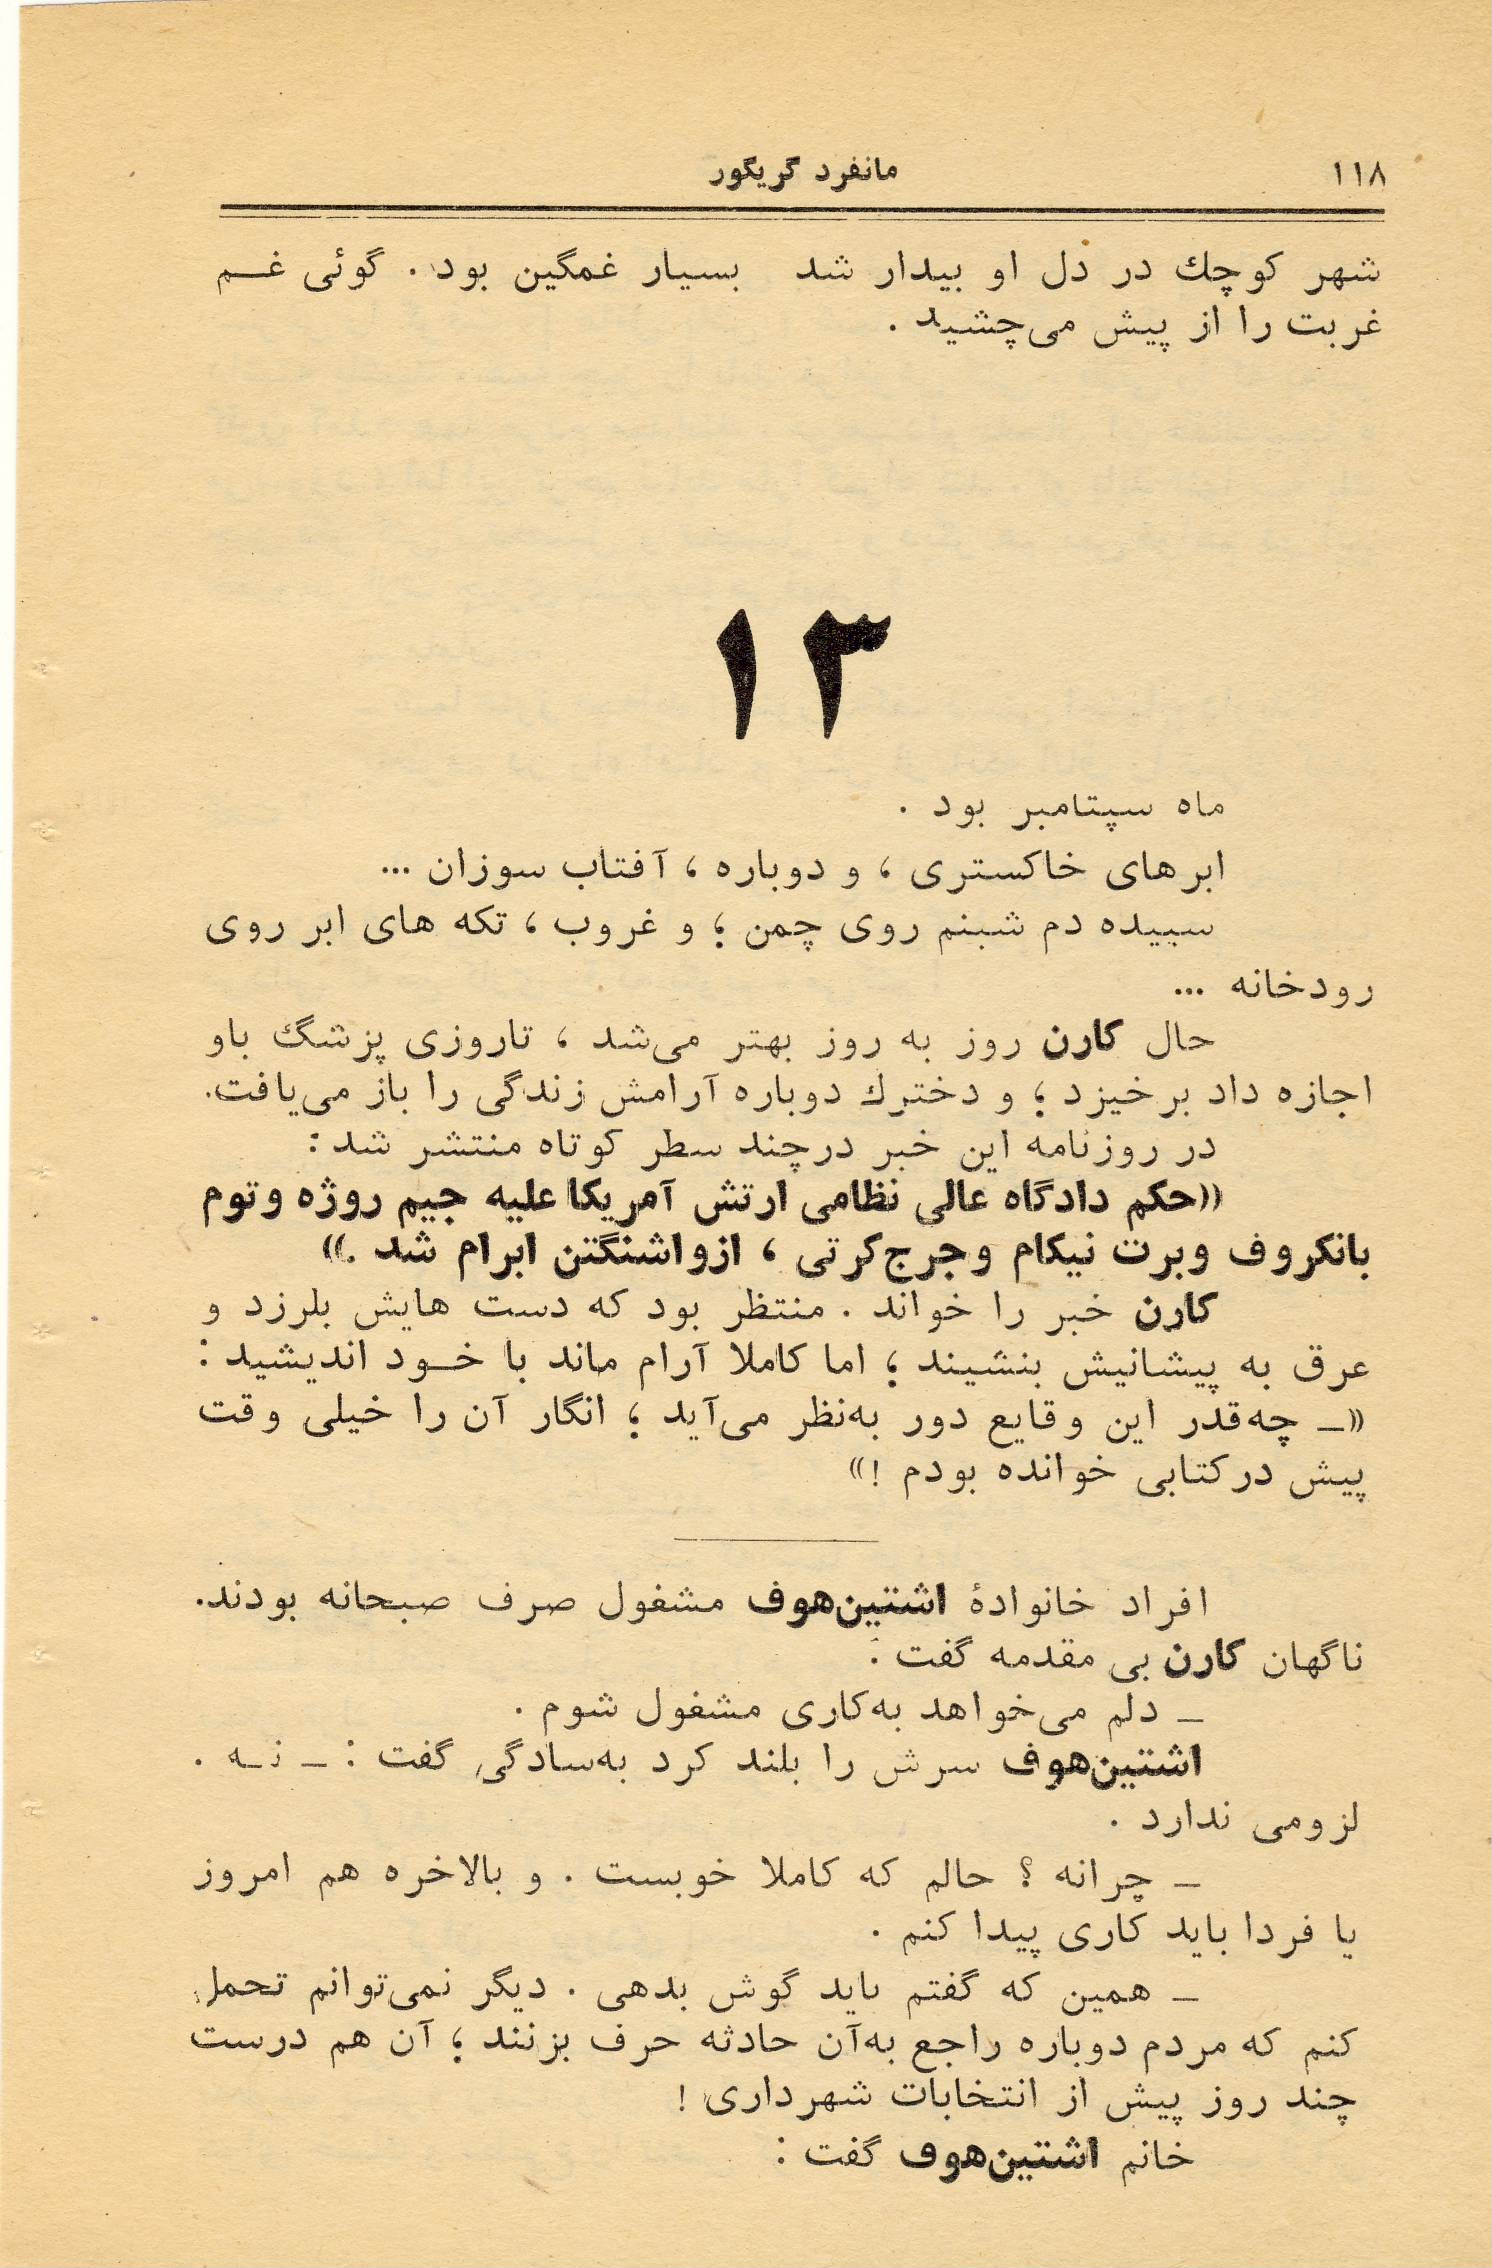 ۱۱۸
مانفرد گریگور
شهر کوچك در دل او بیدار شد بسیار غمگین بود . گوئی غـــم
غربت را از پیش می‌چشید .
۱۳
ماه سپتامبر بود .
ابرهای خاکستری ، و دوباره ، آفتاب سوزان ...
سپیده دم شبنم روی چمن ؛ و غروب ، تکه های ابر روی
رودخانه ...
حال کارن روز به روز بهتر می‌شد ، تاروزی پزشگ باو
اجازه داد برخیزد ؛ و دخترك دوباره آرامش زندگی را باز می‌یافت.
در روزنامه این خبر درچند سطر کوتاه منتشر شد :
((حکم دادگاه عالی نظامی ارتش آمریکا علیه جیم روژه وتوم
بانکروف وبرت نیکام وجرج‌کرتی ، ازواشنگتن ابرام شد .))
کارن خبر را خواند . منتظر بود که دست هایش بلرزد و
عرق به پیشانیش بنشیند ؛ اما کاملا آرام ماند با خـــود اندیشید :
((ــ چه‌قدر این وقایع دور به‌نظر می‌آید ؛ انگار آن را خیلی وقت
پیش درکتابی خوانده بودم !))
افراد خانوادهٔ اشتین‌هوف مشغول صرف صبحانه بودند.
ناگهان کارن بی مقدمه گفت :
ــ دلم می‌خواهد به‌کاری مشغول شوم .
اشتین‌هوف سرش را بلند کرد به‌سادگی گفت : ــ نــه .
لزومی ندارد .
ــ چرانه ؟ حالم که کاملا خوبست . و بالاخره هم امروز
یا فردا باید کاری پیدا کنم .
ــ همین که گفتم باید گوش بدهی . دیگر نمی‌توانم تحمل
کنم که مردم دوباره راجع به‌آن حادثه حرف بزنند ؛ آن هم درست
چند روز پیش از انتخابات شهرداری !
خانم اشتین‌هوف گفت :